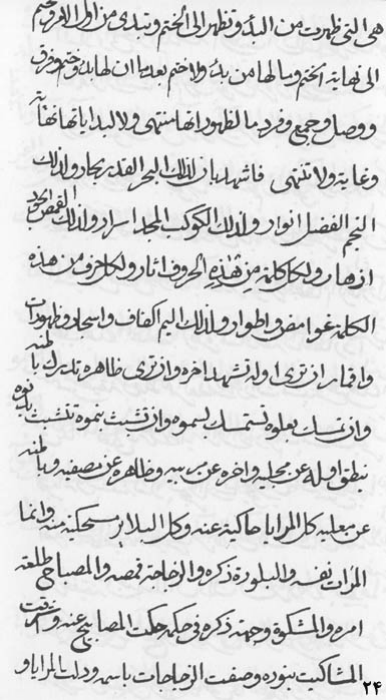 هی التی ظهرت من البدء و تظهر الی الختم و تبدی من اول الاول و ختم
الی نهایة الختم و ما لها من بدء و لا ختم بعد ما ان لها بدء و ختم و فرق
و وصل و جمع و فرد ما لظهوراتها منتهی و لا لبدایاتها نهایة
و غایة و لا تنتهی فاشهد بان لذلک البحر القدر بحار و لذلک
النجم الفضل انوار و لذلک الکوکب المجد اسرار و لذلک القمص الجود
ازهار و لکل کلمة من هذه الحروف اثار و لکل حرف من هذه
الکلمة غوامض فی اطوار و لذلک الیم الکفاف و اسحار و ظهورات
و اقمار ان تری اوله تشهد اخره و ان تری ظاهره تدرک باطنه
و ان تمسک بعلوه تستمسک بسموه و ان تشبث بنموه تتشبث بدنوه
نطق اوله عن مجلیه و اخره عن مربیه و ظاهره عن مصفیه و باطنه
عن معلیه کل المرایا حاکیة عنه و کل البلایر مستحکیة منه و انما
المرآت نفسه و البلورة ذکره و الزجاجة قمصه و المصباح طلعة
امره و المشکوة وجهة ذکره فی حکمه حکت المصابیح عنه و اشرقت
المشاکیت بنوره و صفت الزجاجات باسمه و دلت المرایا و
۲۴